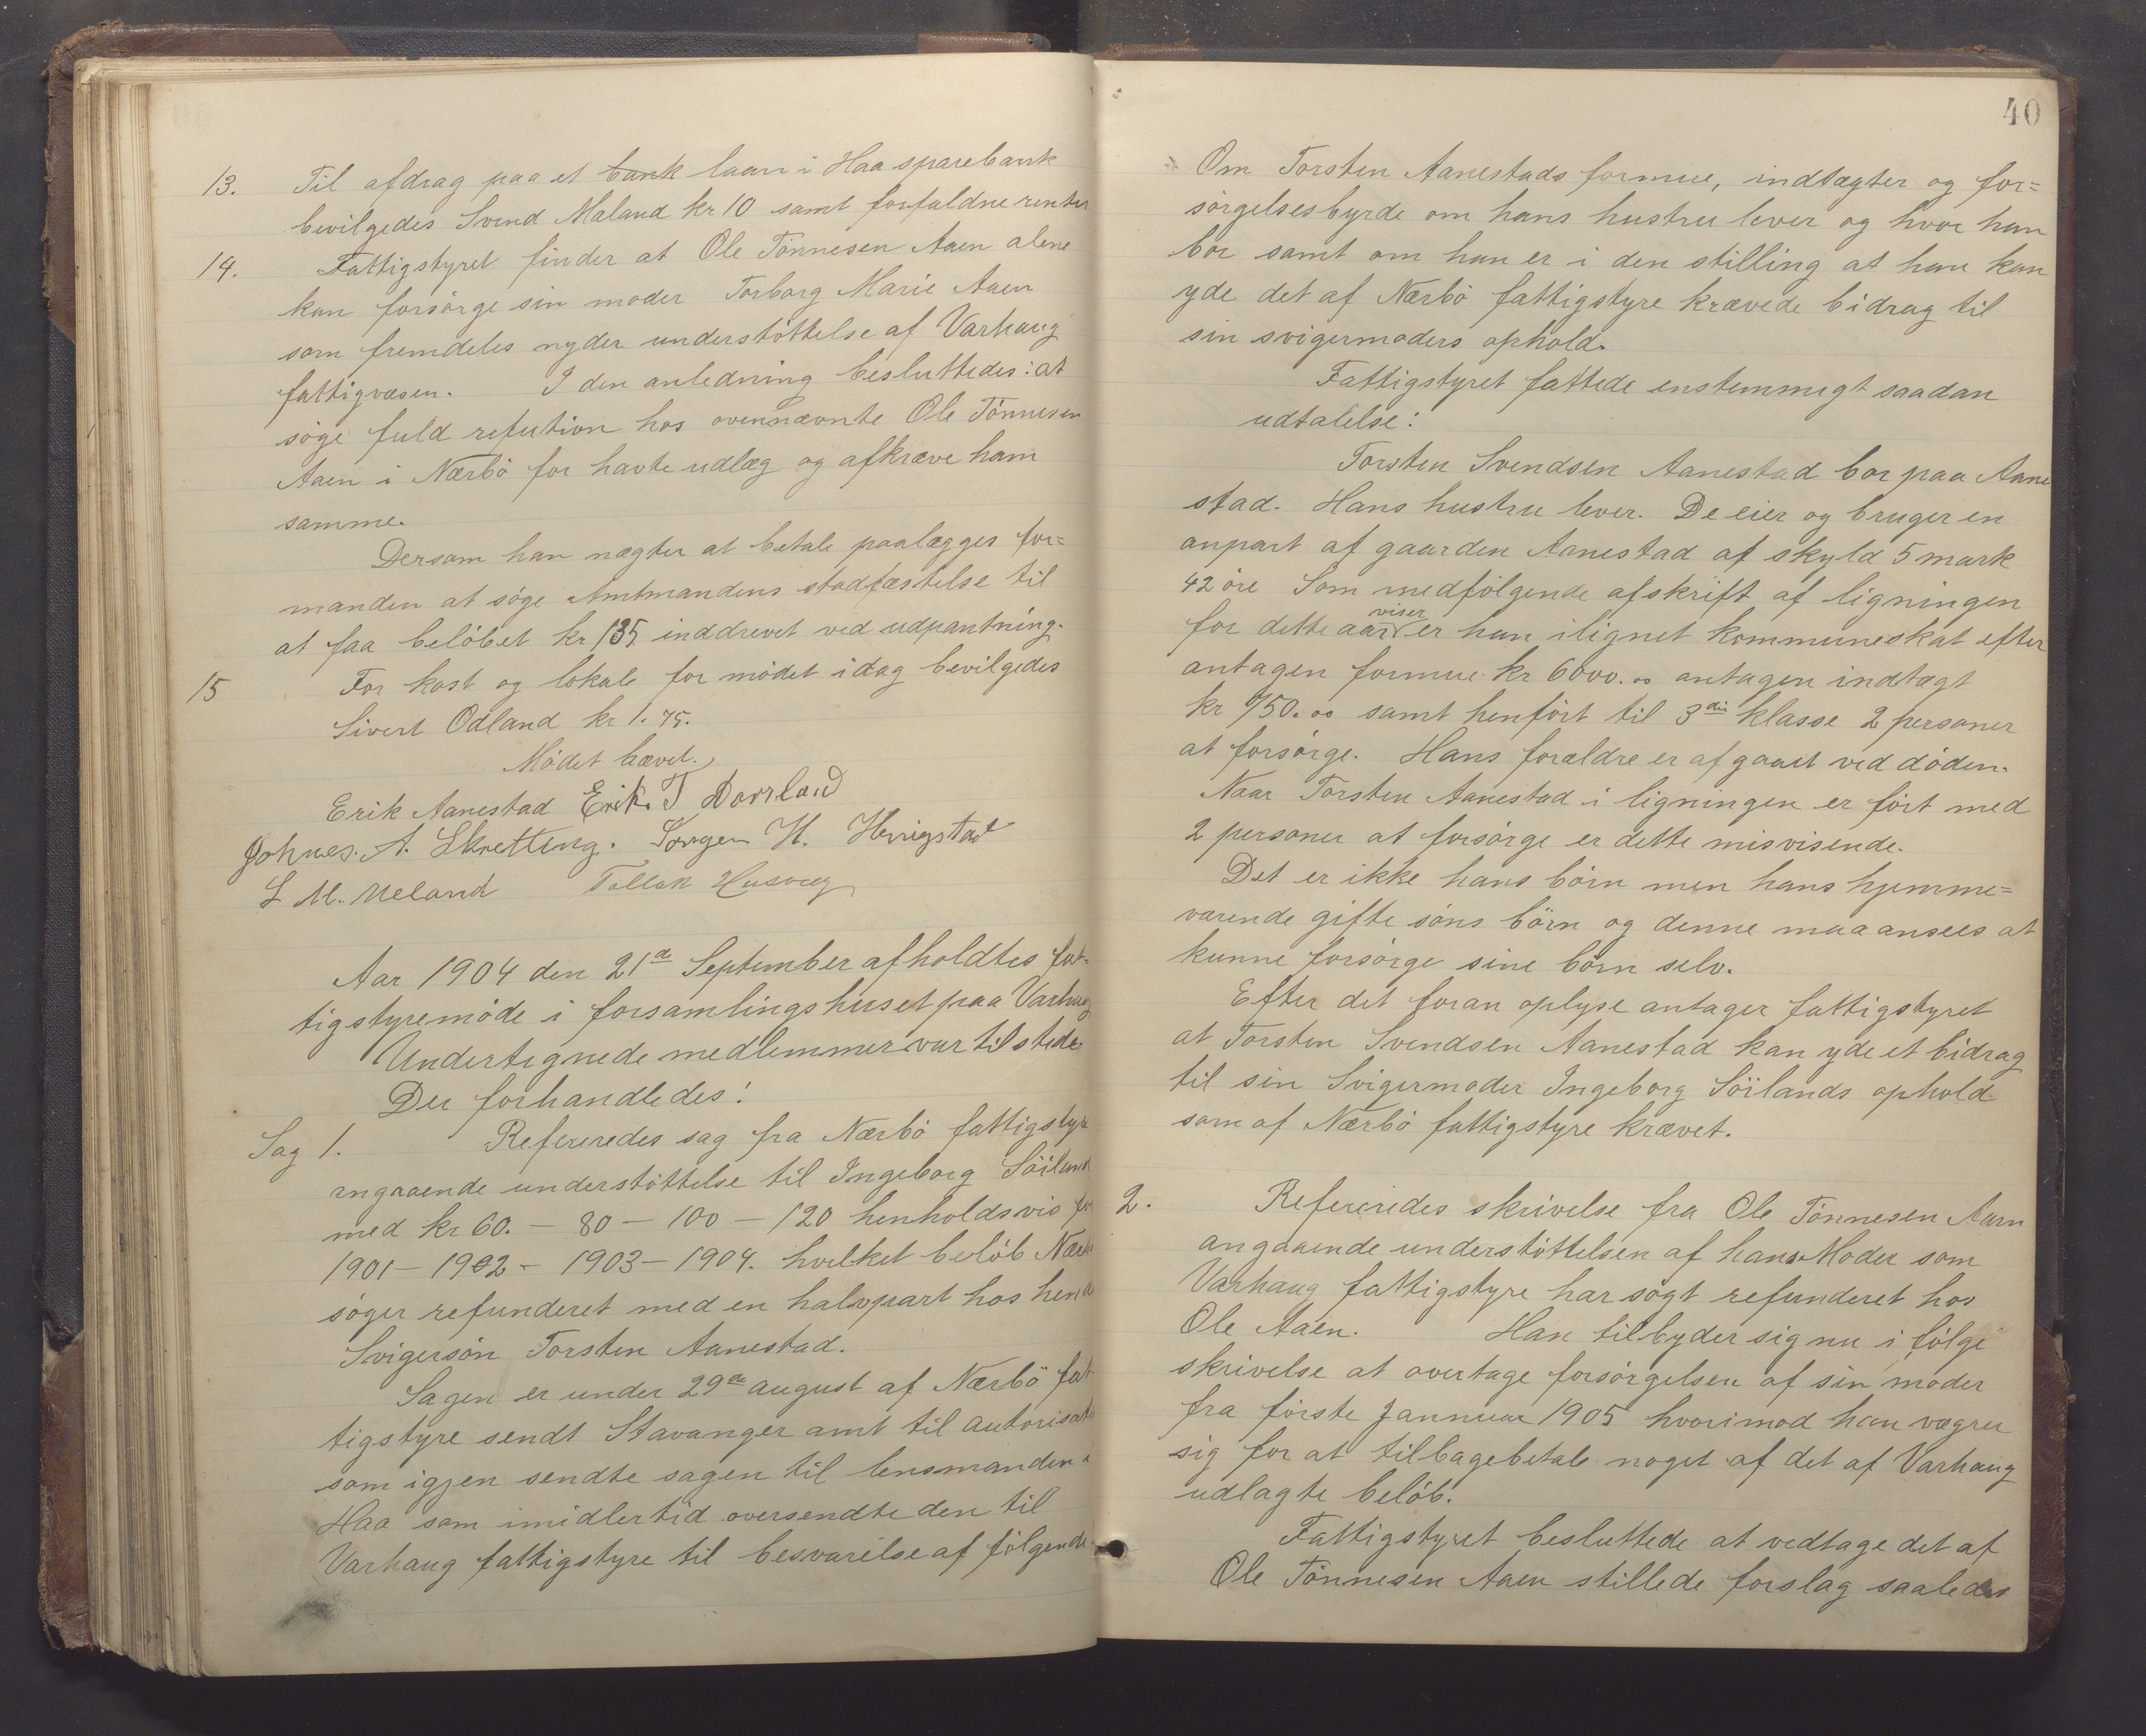 13. Til afdrag paa et bank laan i Haa sparebank
bevilgedes Svend Maland kr 10 samt forfaldne renter
14. Fattigstyret finder at Ole Tönnesen Aaen alene
kan forsörge sin moder Torborg Marie Aaen
som fremdeles nyder understöttelse af Varhaug
fattigvæsen. I den anledning besluttedes: at
söge fuld refution hos ovennævnte Ole Tönnesen
Aaen i Nærbö for havte udlæg og afkræve ham
samme.
Dersom han nægter at betale paalægges for=
manden at söge Amtmandens stadfæstelse til
at faa belöbet kr 135 inddrevet ved udpantning.
15 For kost og lokale for mödet idag bevilgedes
Sivert Odland kr 1.75.
Mödet hævet.
Erik Aanestad Erik T
Johnes. A. Skretting. H.
L M. Ueland Tollak
Aar 1904 den 21de September afholdtes fat-
tigstyremöde i forsamlingshuset paa Varhaug
Undertegnede medlemmer var tilstede.
Der forhandledes!
Sag 1. Refereredes sag fra Nærbö fattigstyre
angaaende understöttelse til Ingeborg Söiland
med kr 60. – 80 – 100 – 120 henholdsvis for
1901 – 1902 – 1903 – 1904. hvilket belöb Nærbö
söger refunderet med en halvpart hos hendes
Svigersön Torsten Aanestad.
Sagen er under 29de august af Nærbö fat-
tigstyre sendt Stavanger amt til
som igjen sendte sagen til lensmanden i
Haa som imidlertid oversendte den til
Varhaug fattigstyre til besvarelse af fölgende:
40
Om Torsten Aanestads formue, indtægter og for=
sörgelsesbyrde om hans hustru lever og hvor han
bor samt om han er i den stilling at han kan
yde det af Nærbö fattigstyre krævede bidrag til
sin svigermoders ophold.
Fattigstyret fattede enstemmigt saadan
udtalelse:
Torsten Svendsen Aanestad bor paa Aane
stad. Hans hustru lever. De eier og bruger en
anpart af gaarden Aanestad af skyld 5 mark
42 öre Som medfölgende afskrift af ligningen
for dette aar viser er han ilignet kommuneskat efter
antagen formue kr 6000.00 antagen indtægt
kr 750.00 samt henfört til 3die klasse 2 personer
at forsörge. Hans forældre er afgaaet ved döden.
Naar Torsten Aanestad i ligningen er fört med
2 personer at forsörge er dette misvisende.
Det er ikke hans börn men hans hjemme=
værende gifte söns börn og denne maa ansees at
kunne forsörge sine börn selv.
Efter det foran oplyse antager fattigstyret
at Torsten Svendsen Aanestad kan yde et bidrag
til sin Svigermoder Ingeborg Söilands ophold
som af Nærbö fattigstyre krævet.
2. Refereredes skrivelse fra Ole Tönnesen Aaen
angaaende understöttelsen af hans Moder som
Varhaug fattigstyre har sögt refunderet hos
Ole Aaen. Han tilbyder sig nu i fölge
skrivelse at overtage forsörgelsen af sin moder
fra förste Jannuar 1905 hvorimod han vægrer
sig for at tilbagebetale noget af det af Varhaug
udlagte belöb.
Fattigstyret besluttede at vedtage det af
Ole Tönnesen Aaen stillede forslag saaledes